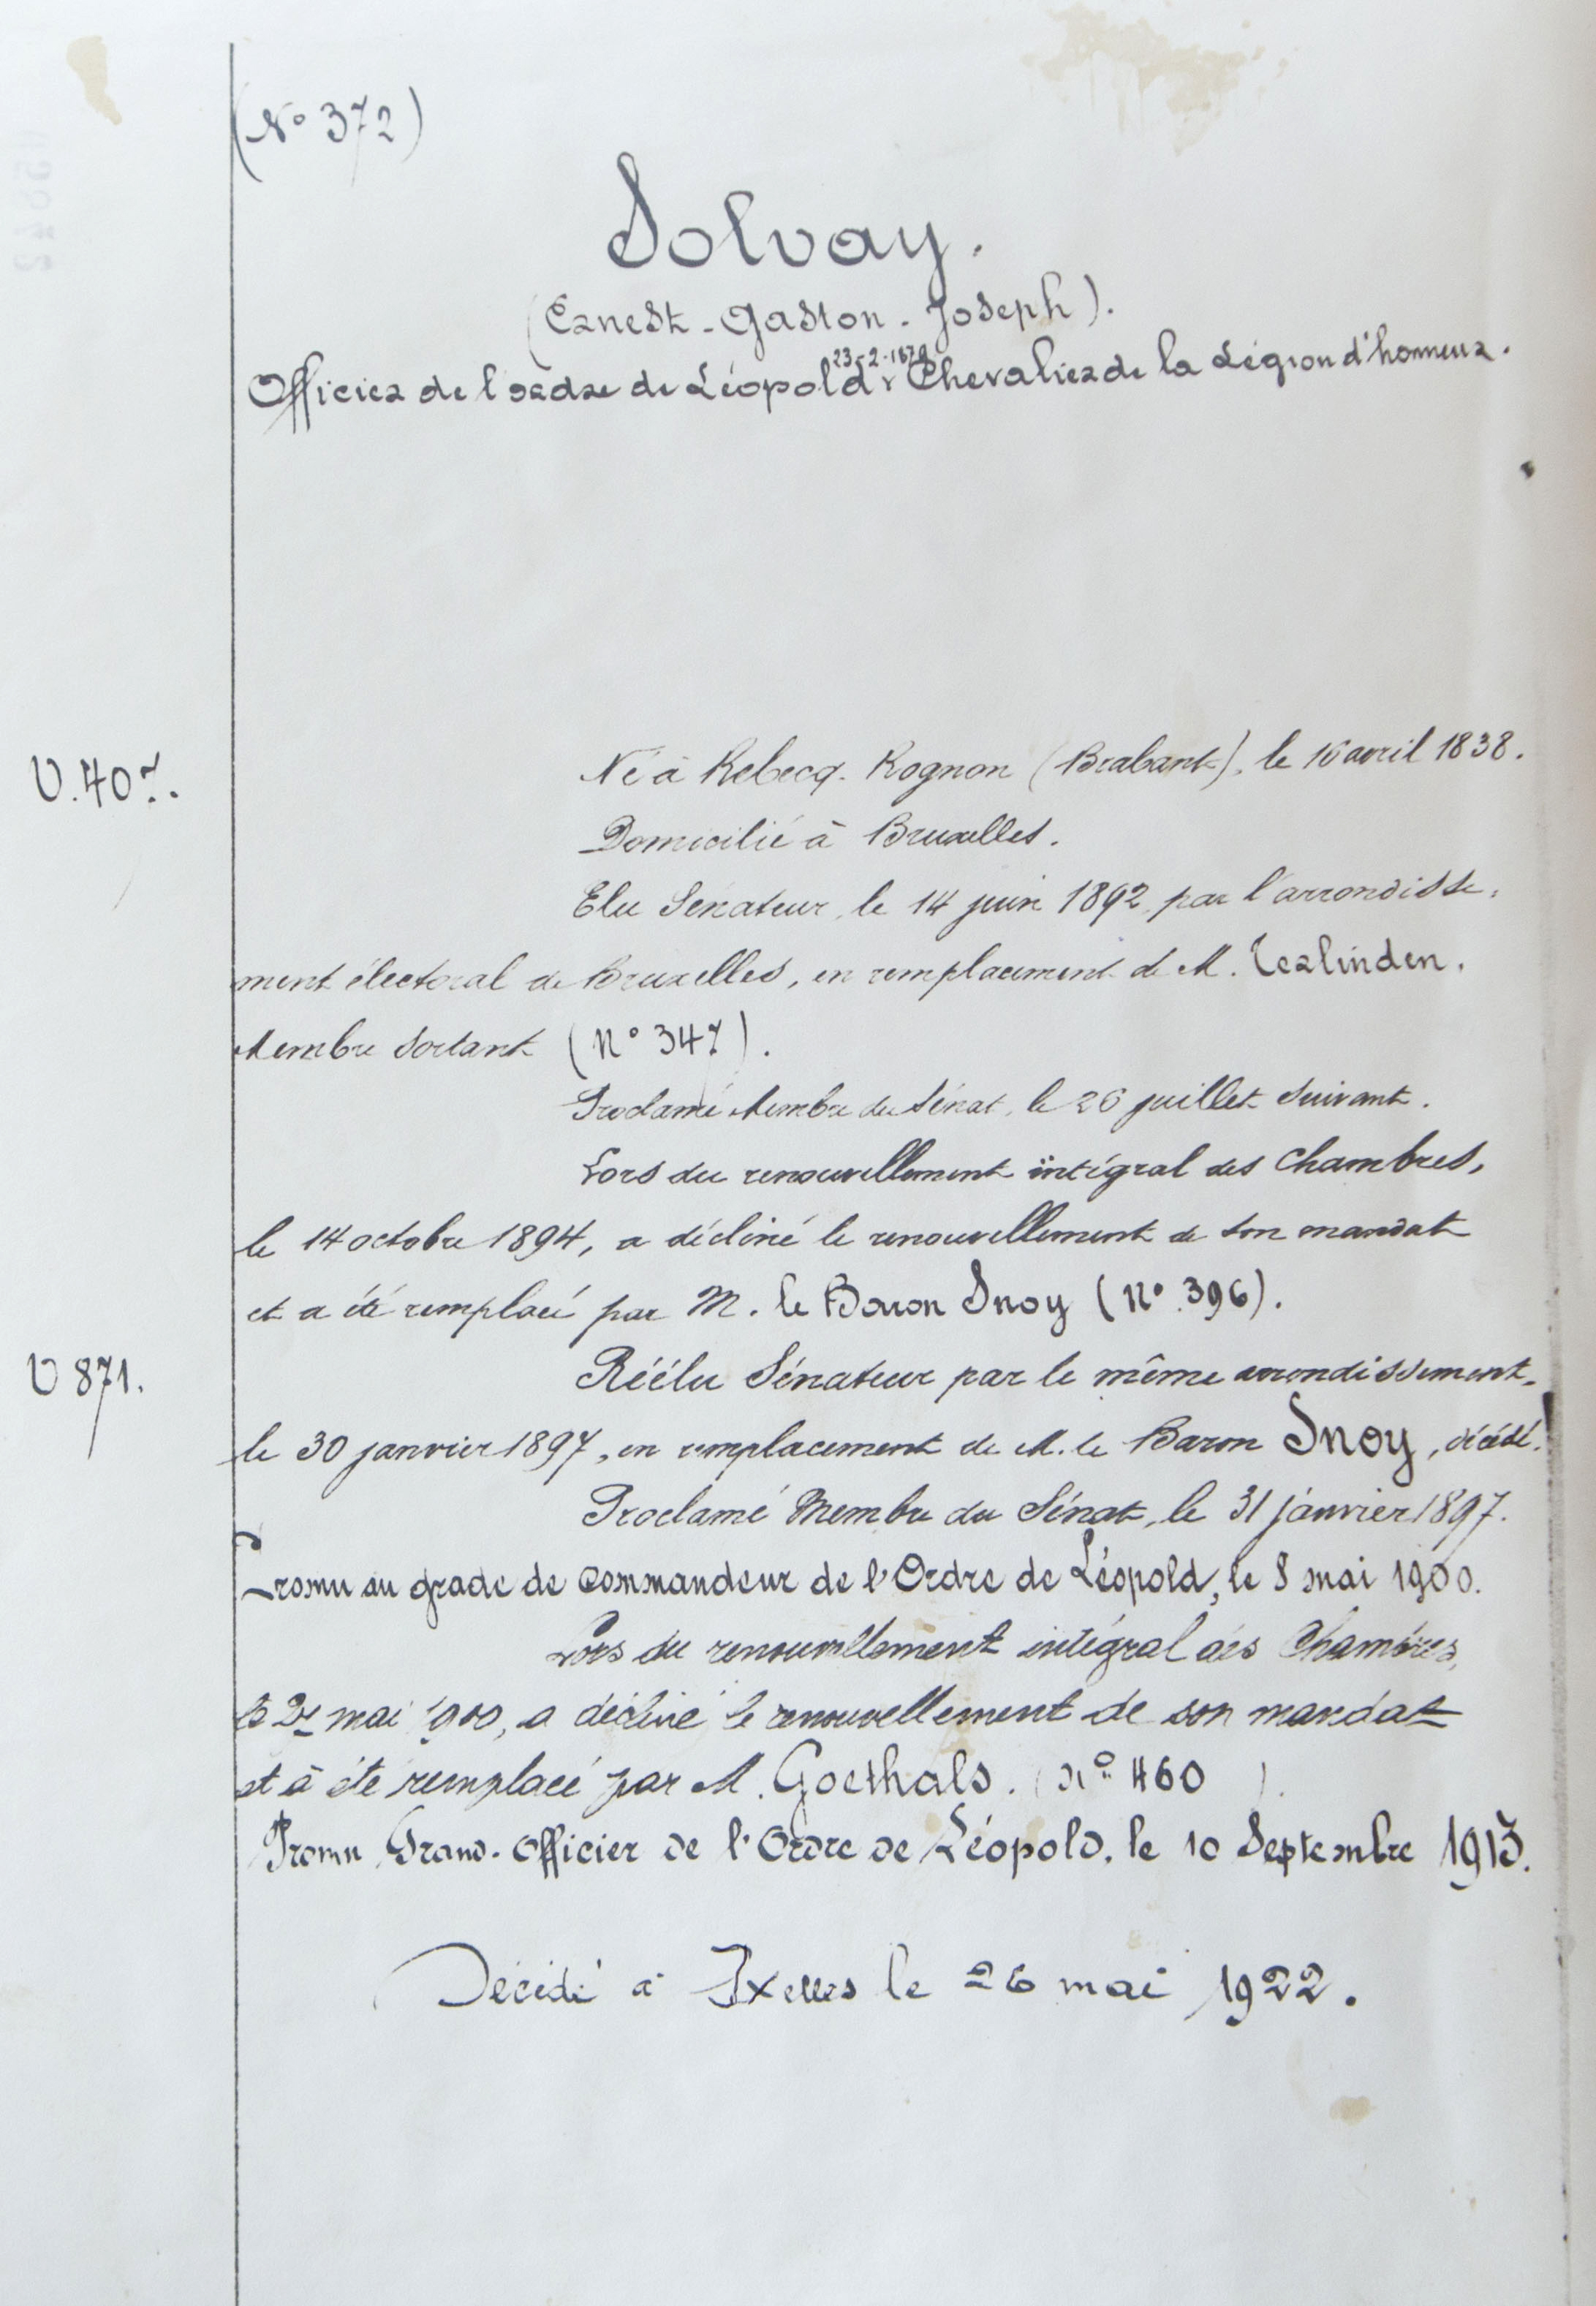 (N° 372)
Solvay.
(Ernest - Gaston - Joseph).
23-2-1879
Officier de l'ordre de Léopold, Chevalier de la Légion d'honneur.
V. 407.
Né à Rebecq-Rognon (Brabant), le 16 avril 1838.
Domicilié à Bruxelles.
Elu Sénateur, le 14 juin 1892, par l'arrondisse-
ment électoral de Bruxelles, en remplacement de M. Terlinden,
Membre sortant (N° 347).
Proclamé Membre du Sénat, le 26 juillet suivant.
Lors du renouvellement intégral des Chambres,
le 14 octobre 1894, a décliné le renouvellement de son mandat
et a été remplacé par M. le Baron Snoy (N° 396).
V 871.
Réélu Sénateur par le même arrondissement,
le 30 janvier 1897, en remplacement de M. le Baron Snoy, décédé.
Proclamé Membre du Sénat, le 31 janvier 1897.
Promu au grade de Commandeur de l'Ordre de Léopold, le 8 mai 1900.
Lors du renouvellement intégral des Chambres,
le mai 1900, a décliné le renouvellement de son mandat
et a été remplacé par M. Goethals. (N° 460)
Promu Grand-Officier de l'Ordre de Léopold, le 10 Septembre 1913.
Décédé à Ixelles le 26 mai 1922.